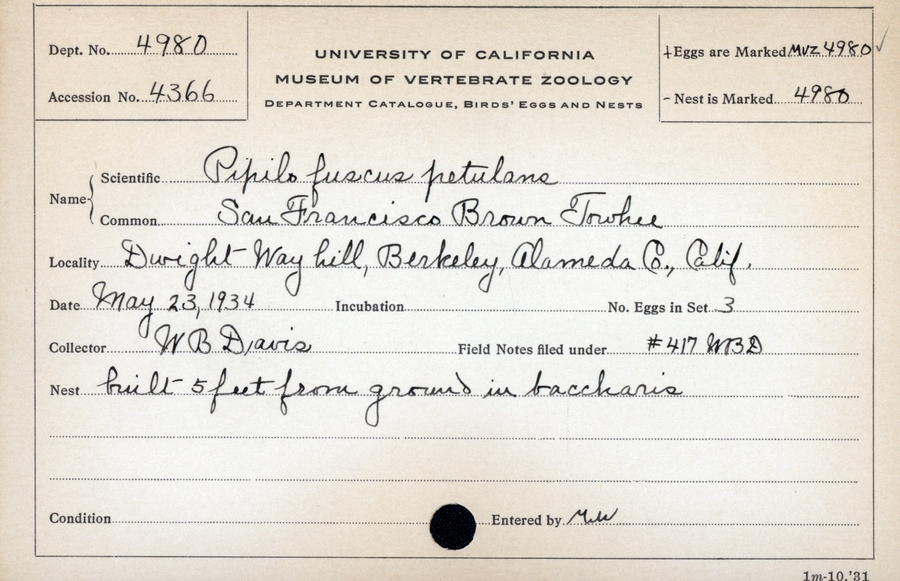 Dept. No. 4980
Accession No. 4366
UNIVERSITY OF CALIFORNIA
MUSEUM OF VERTEBRATE ZOOLOGY
DEPARTMENT CATALOGUE, BIRDS' EGGS AND NESTS
+Eggs are Marked MVZ 4980 ✓
- Nest is Marked 4980
Name { Scientific Pipilo fuscus petulans
Common San Francisco Brown Towhee
Locality Dwight Way hill, Berkeley, Alameda Co., Calif.
Date May 23, 1934 Incubation No. Eggs in Set 3
Collector W B Davis Field Notes filed under #417 WBD
Nest built 5 feet from ground in baccharis
Condition Entered by
1m-10,'31